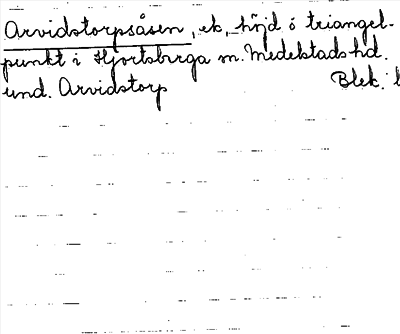 Arvidstorpsåsen, ek, höjd ó triangel-
punkt i Hjortsberga sn. Medelstads hd.
und. Arvidstorp Blek.